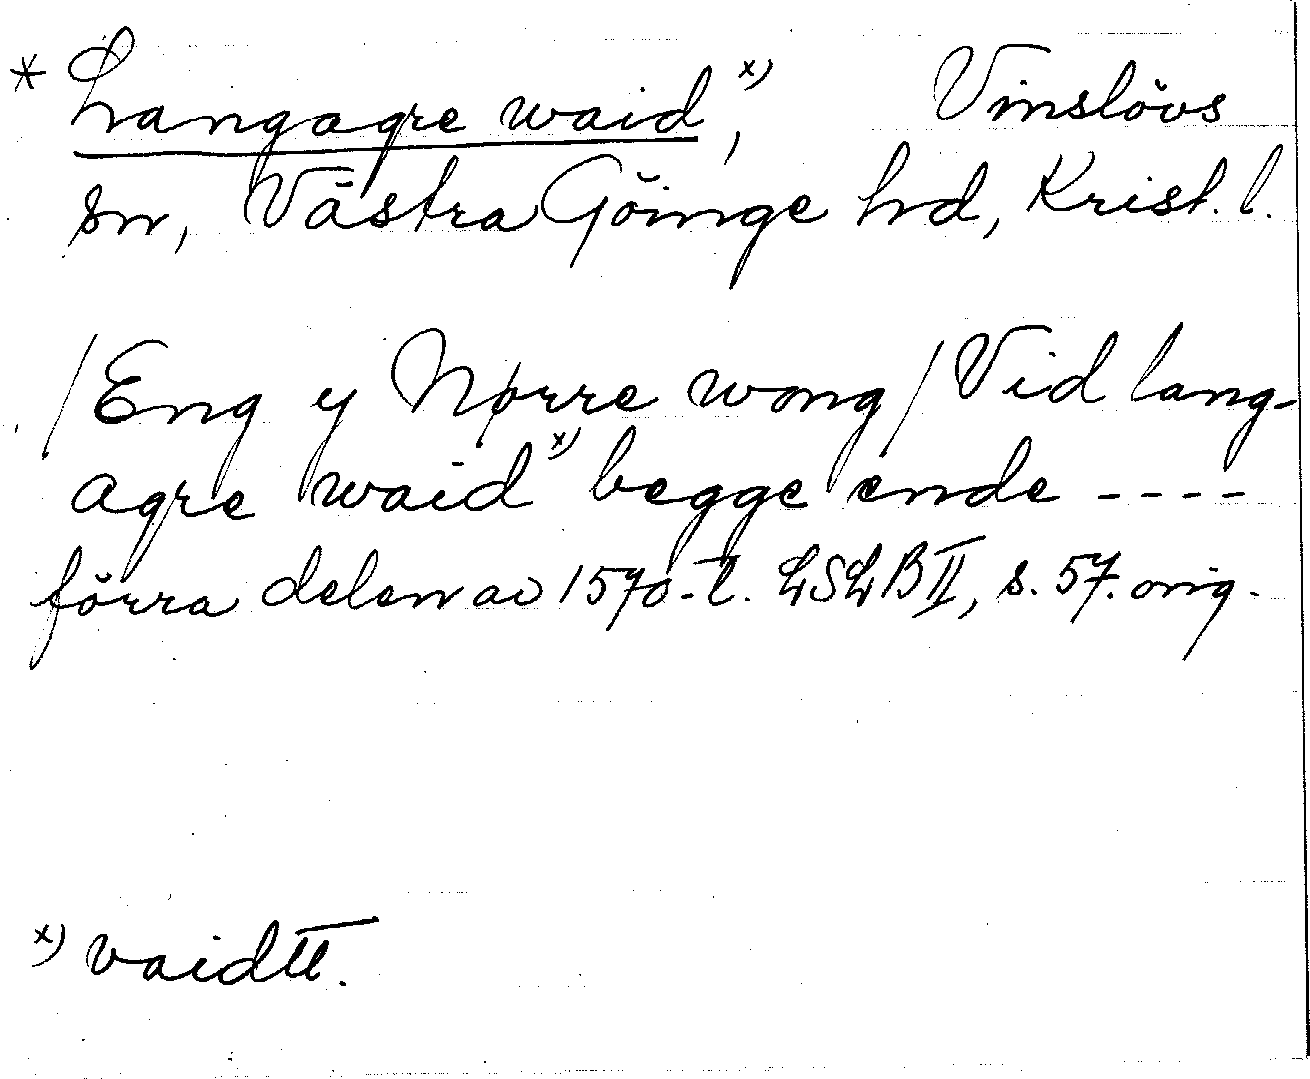 * Langagre waid x), Vinslövs
sn, Västra Göinge hd, Krist. l.
/Eng y Nørre wong/ Vid lang-
agre waid x) begge ende ----
förra delen av 1570-t. LSLB II, s. 57. orig.
x) vaidtt.